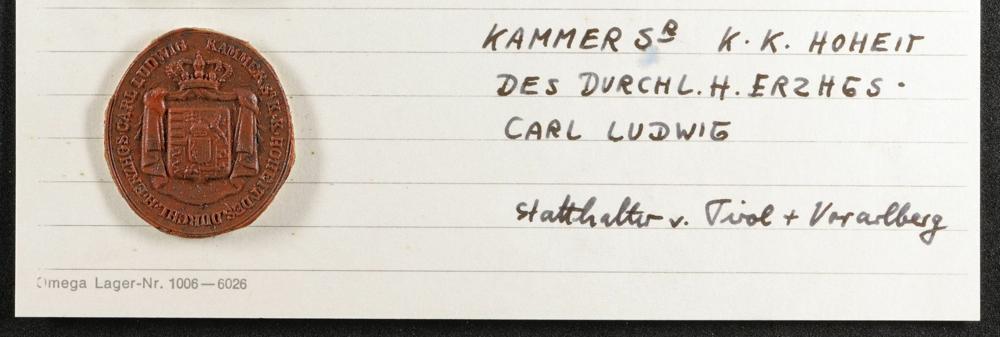 KAMMER SR K. K. HOHEIT
DES DURCHL. H. ERZHGS.
CARL LUDWIG
Statthalter v. Tirol + Vorarlberg
KAMMER Sr K.K. HOHEIT DES DURCHL. H. ERZHGS CARL LUDWIG
Omega Lager-Nr. 1006—6026